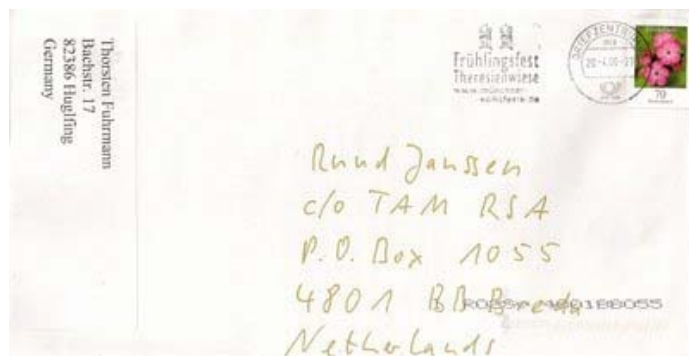 Thorsten Fuhrmann
Bachstr. 17
82386 Huglfing
Germany
Frühlingsfest
Theresienwiese
BRIEFZENTRUM
70
Ruud Janssen
c/o TAM RSA
P.O. Box 1055
4801 BB Breda
Netherlands